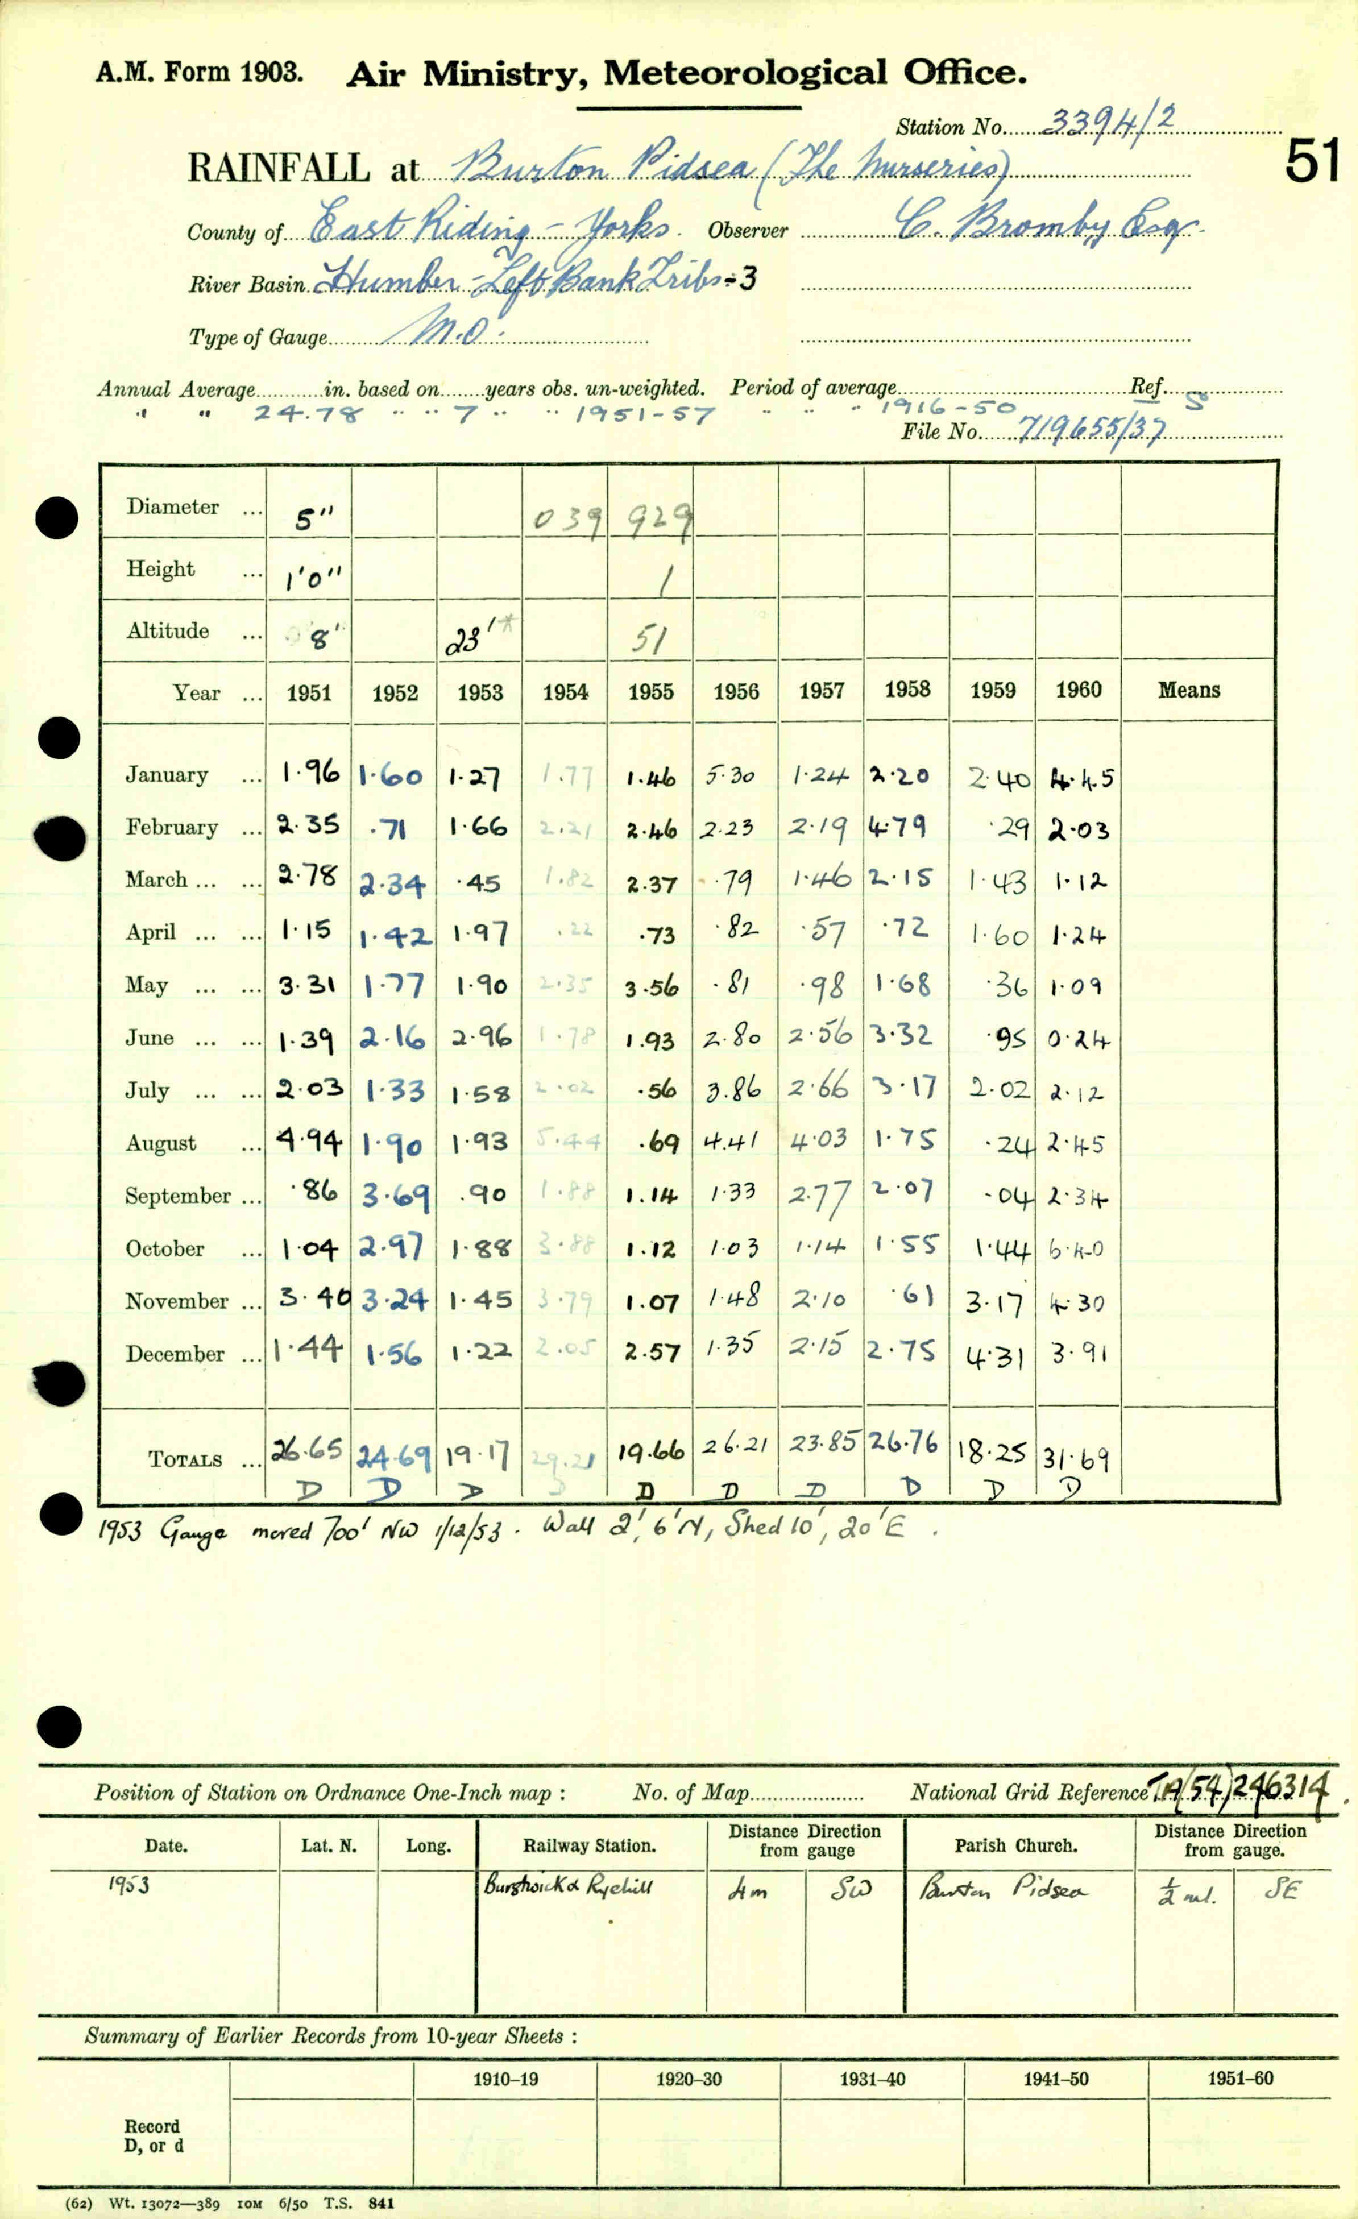 A.M. Form 1903. Air Ministry, Meteorological Office.
Station No. 3394/2
51
RAINFALL at Burton Pidsea (The Nurseries)
County of East Riding - Yorks. Observer C. Bromby Esq.
River Basin Humber - Left Bank Tribs - 3
Type of Gauge M.O.
Annual Average in. based on years obs. un-weighted. Period of average Ref. S
" " 24.78 " " 7 " " 1951-57 " " " 1916-50
File No. 719655/37
Diameter ... 5" 039 929
Height ... 1'0" 1
Altitude ... 8' 23'* 51
Year ... 1951 1952 1953 1954 1955 1956 1957 1958 1959 1960 Means
January ... 1.96 1.60 1.27 1.77 1.46 5.30 1.24 2.20 2.40 4.45
February ... 2.35 .71 1.66 2.21 2.46 2.23 2.19 4.79 .29 2.03
March ... ... 2.78 2.34 .45 1.82 2.37 .79 1.46 2.15 1.43 1.12
April ... ... 1.15 1.42 1.97 .22 .73 .82 .57 .72 1.60 1.24
May ... ... 3.31 1.77 1.90 2.35 3.56 .81 .98 1.68 .36 1.09
June ... ... 1.39 2.16 2.96 1.78 1.93 2.80 2.56 3.32 .95 0.24
July ... ... 2.03 1.33 1.58 2.02 .56 3.86 2.66 3.17 2.02 2.12
August ... 4.94 1.90 1.93 5.44 .69 4.41 4.03 1.75 .24 2.45
September ... .86 3.69 .90 1.88 1.14 1.33 2.77 2.07 .04 2.34
October ... 1.04 2.97 1.88 3.88 1.12 1.03 1.14 1.55 1.44 6.40
November ... 3.40 3.24 1.45 3.79 1.07 1.48 2.10 .61 3.17 4.30
December ... 1.44 1.56 1.22 2.05 2.57 1.35 2.15 2.75 4.31 3.91
TOTALS ... 26.65 24.69 19.17 29.21 19.66 26.21 23.85 26.76 18.25 31.69
D D D D D D D D D D
1953 Gauge moved 700' NW 1/12/53. Wall 2', 6'N, Shed 10', 20'E.
Position of Station on Ordnance One-Inch map : No. of Map National Grid Reference TA(54)246314
Date. Lat. N. Long. Railway Station. Distance Direction from gauge Parish Church. Distance Direction from gauge.
1953 Burstwick & Ryehill 4m SW Burton Pidsea ½ ml. SE
Summary of Earlier Records from 10-year Sheets :
1910–19 1920–30 1931–40 1941–50 1951–60
Record
D, or d
(62) Wt. 13072—389 10M 6/50 T.S. 841